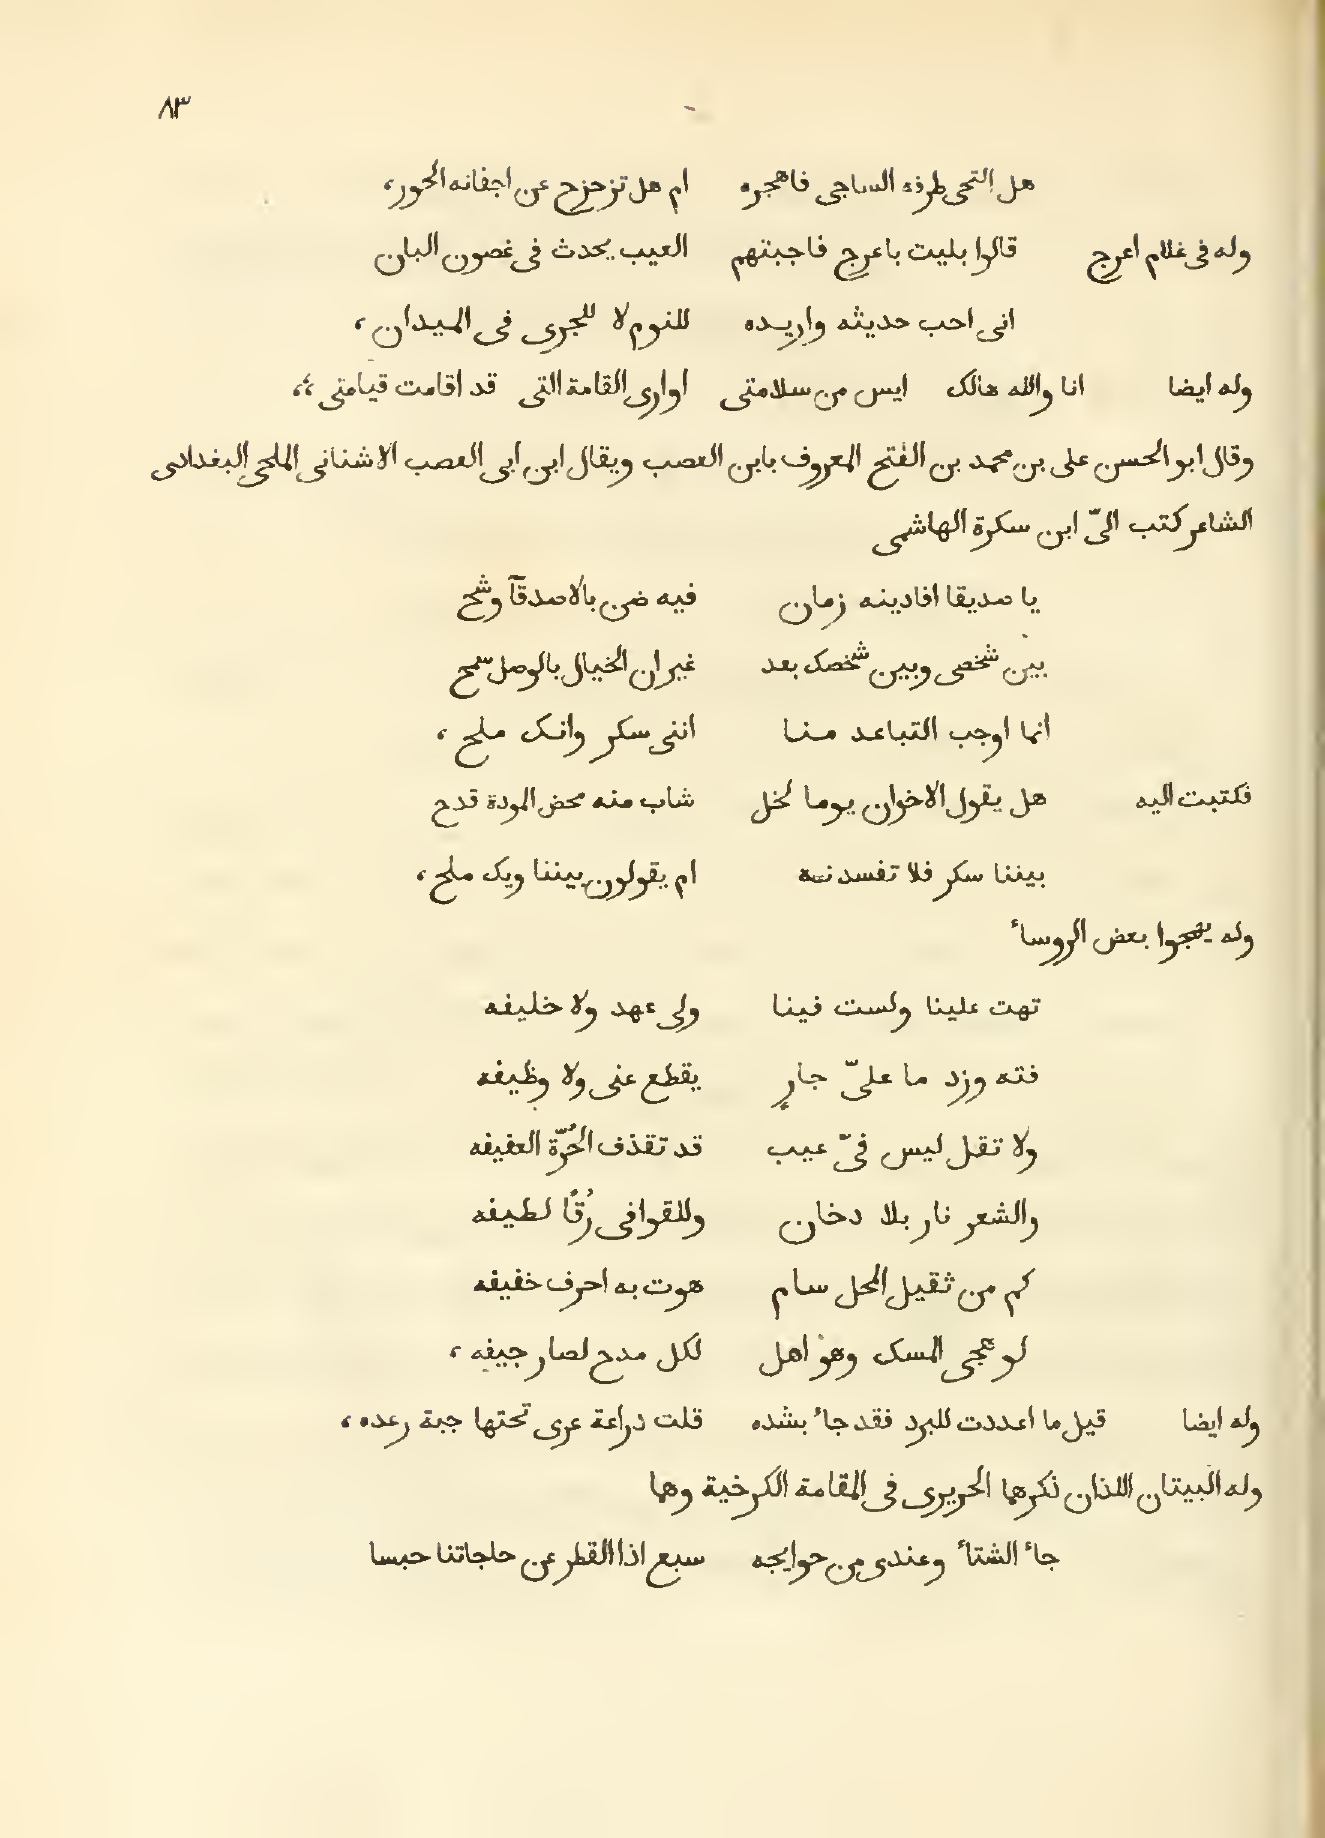 ٨٣
هل التحى طرفه الساجى فاهجره ام هل تزحزح عن اجفانه الحور،
وله فى غلام اعرج قالوا بليت باعرج فاجبتهم العيب يحدث فى غصون البان
انى احب حديثه واريده للنوم لا للجرى فى الميدان،
وله ايضا انا والله هالك ايس من سلامتى اوارى القامة التى قد اقامت قيامتى،،
وقال ابو الحسن على بن محمد بن الفتح المعروف بابن العصب ويقال ابن ابى العصب الاشنانى الملحى البغدادى
الشاعر كتب الىّ ابن سكرة الهاشمى
يا صديقا افادينه زمان فيه ضن بالاصدقآ وشح
بين شخصى وبين شخصك بعد غير ان الخيال بالوصل سمح
انما اوجب التباعد منا اننى سكر وانك ملح،
فكتبت اليه هل يقول الاخوان يوما لخل شاب منه محض المودة قدح
بيننا سكر فلا تفسدنه ام يقولون بيننا ويك ملح،
وله يهجوا بعض الروساء
تهت علينا ولست فينا ولى عهد ولا خليفه
فته وزد ما علىّ جارٍ يقطع عنى ولا وظيفه
ولا تقل ليس فىّ عيب قد تقذف الحُرّة العفيفه
والشعر نار بلا دخان وللقوافى رُقًا لطيفه
كم من ثقيل المحل سام هوت به احرف خفيفه
لو هجى المسك وهو اهل لكل مدح لصار جيفه،
وله ايضا قيل ما اعددت للبرد فقد جاء بشده قلت دراعة عرى تحتها جبة رعده،
وله البيتان اللذان ذكرهما الحريرى فى المقامة الكرخية وهما
جاء الشتاء وعندى من حوايجه سبع اذا القطر عن حاجاتنا حبسا